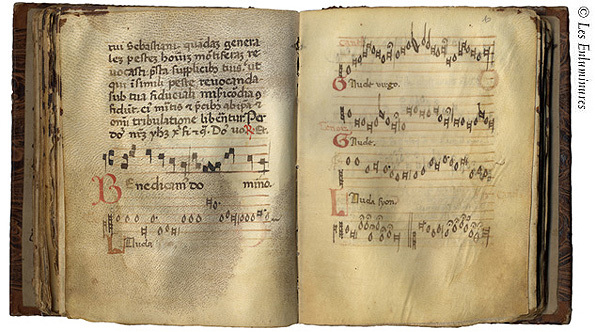 rui Sebastiani. quādaʒ genera
les pestes hoīuʒ mortiferaʒ re
uocasti. psta supplicibꝰ tuis. ut
qui isimili peste reuocanda
sub tua fiduciali misicordia ꝯ
fidūt. & pcibꝰ ab ipa &
omī tribulatione liberentur. Per
Benedicam do mino.
Lauda
Gaude uirgo.
Gaude.
Lauda syon.
© Les Enluminures